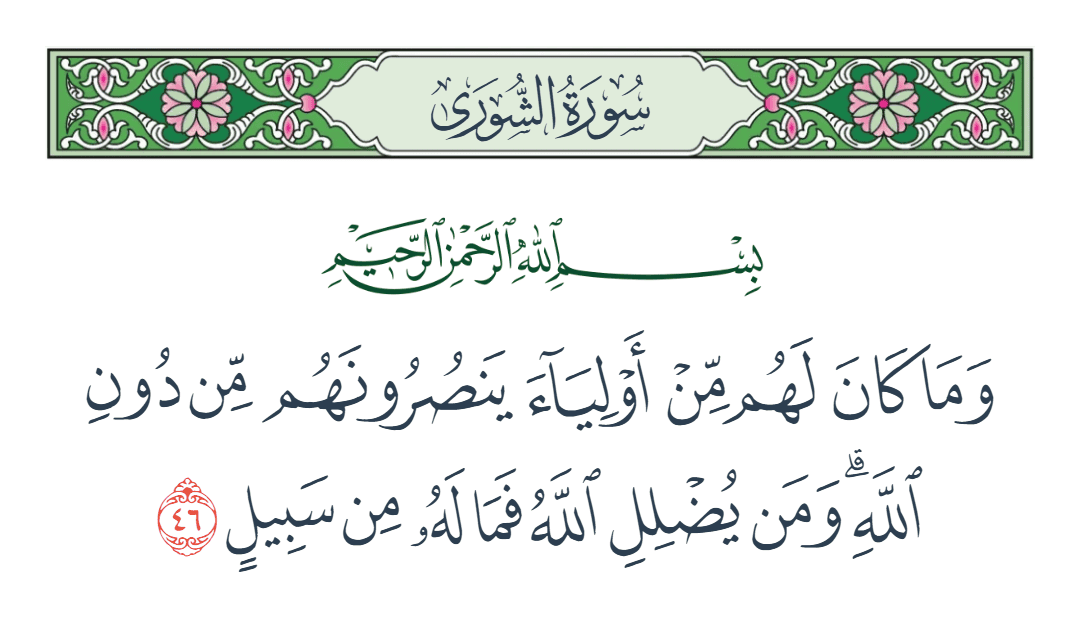 سُورَةُ الشُّورَىٰ
بِسْمِ ٱللَّهِ ٱلرَّحْمَٰنِ ٱلرَّحِيمِ
وَمَا كَانَ لَهُم مِّنْ أَوْلِيَآءَ يَنصُرُونَهُم مِّن دُونِ
ٱللَّهِ ۗ وَمَن يُضْلِلِ ٱللَّهُ فَمَا لَهُۥ مِن سَبِيلٍ ٤٦